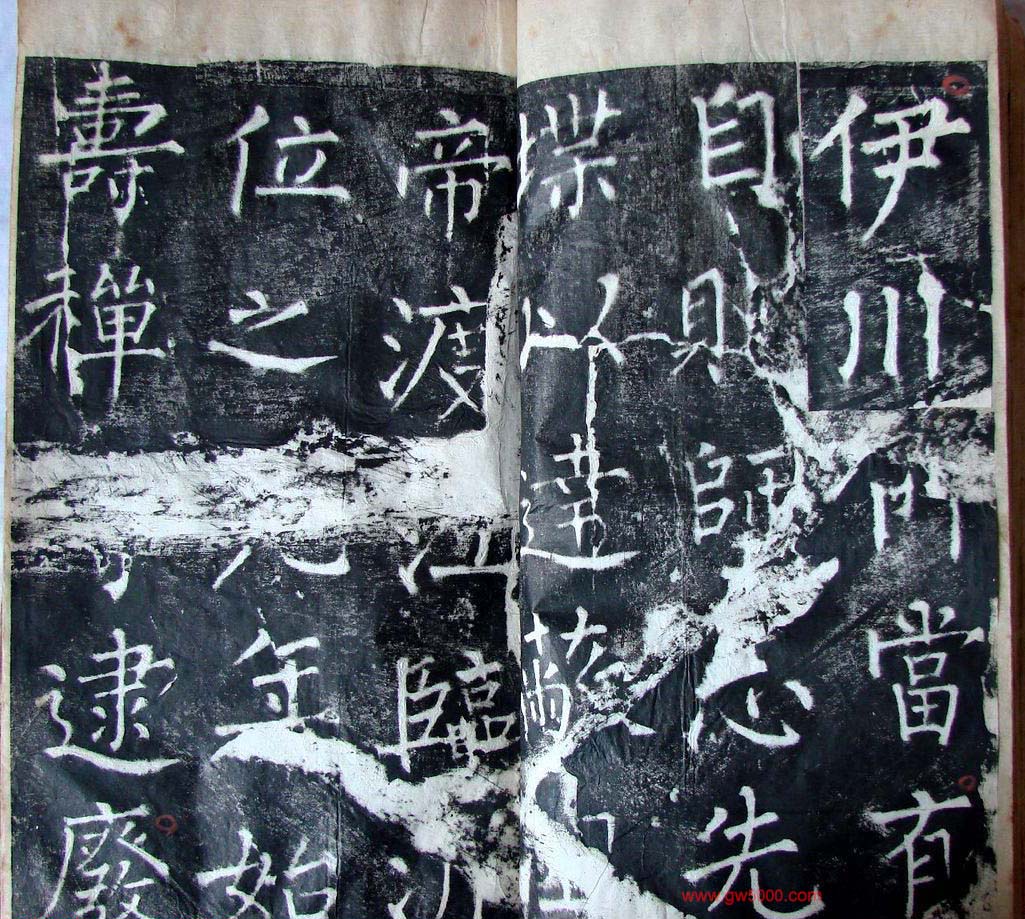 伊川門當有
自則師先
堞以達蔽
帝渡江臨
位之元年始
壽禪逮廢
www.gw5000.com